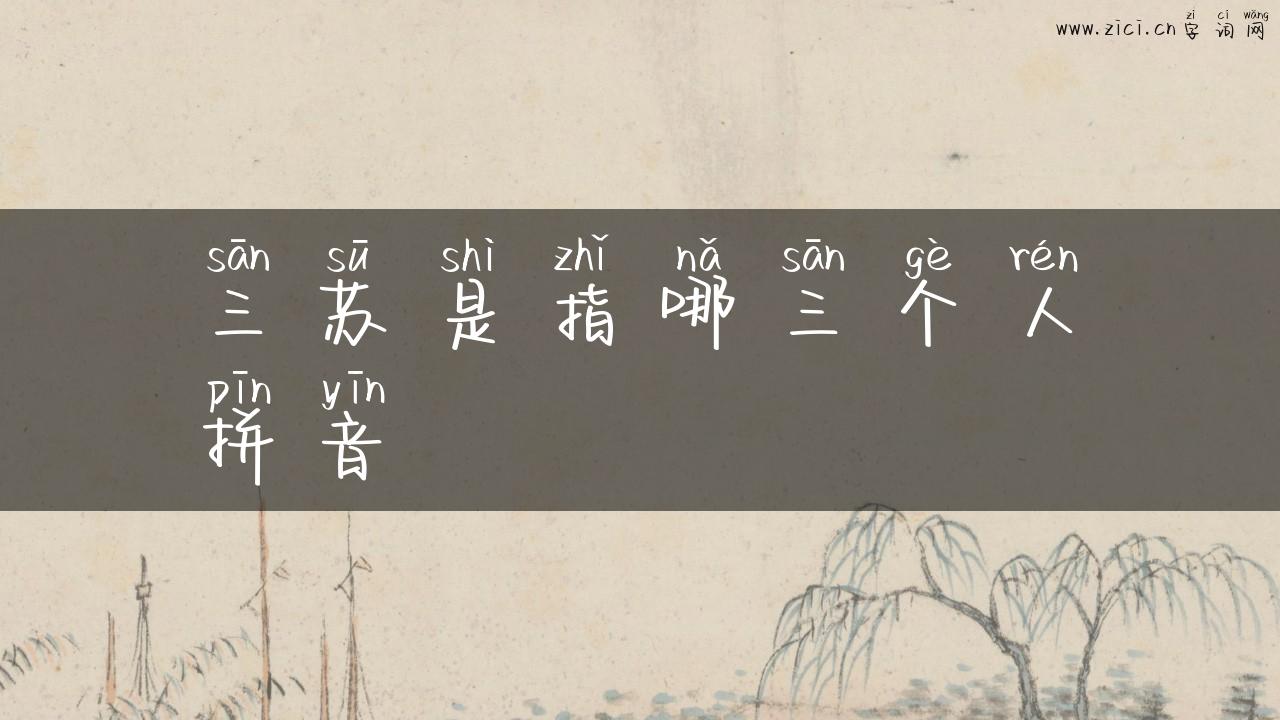 zì cí wǎng
www.zici.cn 字 词 网
sān sū shì zhǐ nǎ sān gè rén
三 苏 是 指 哪 三 个 人
pīn yīn
拼 音